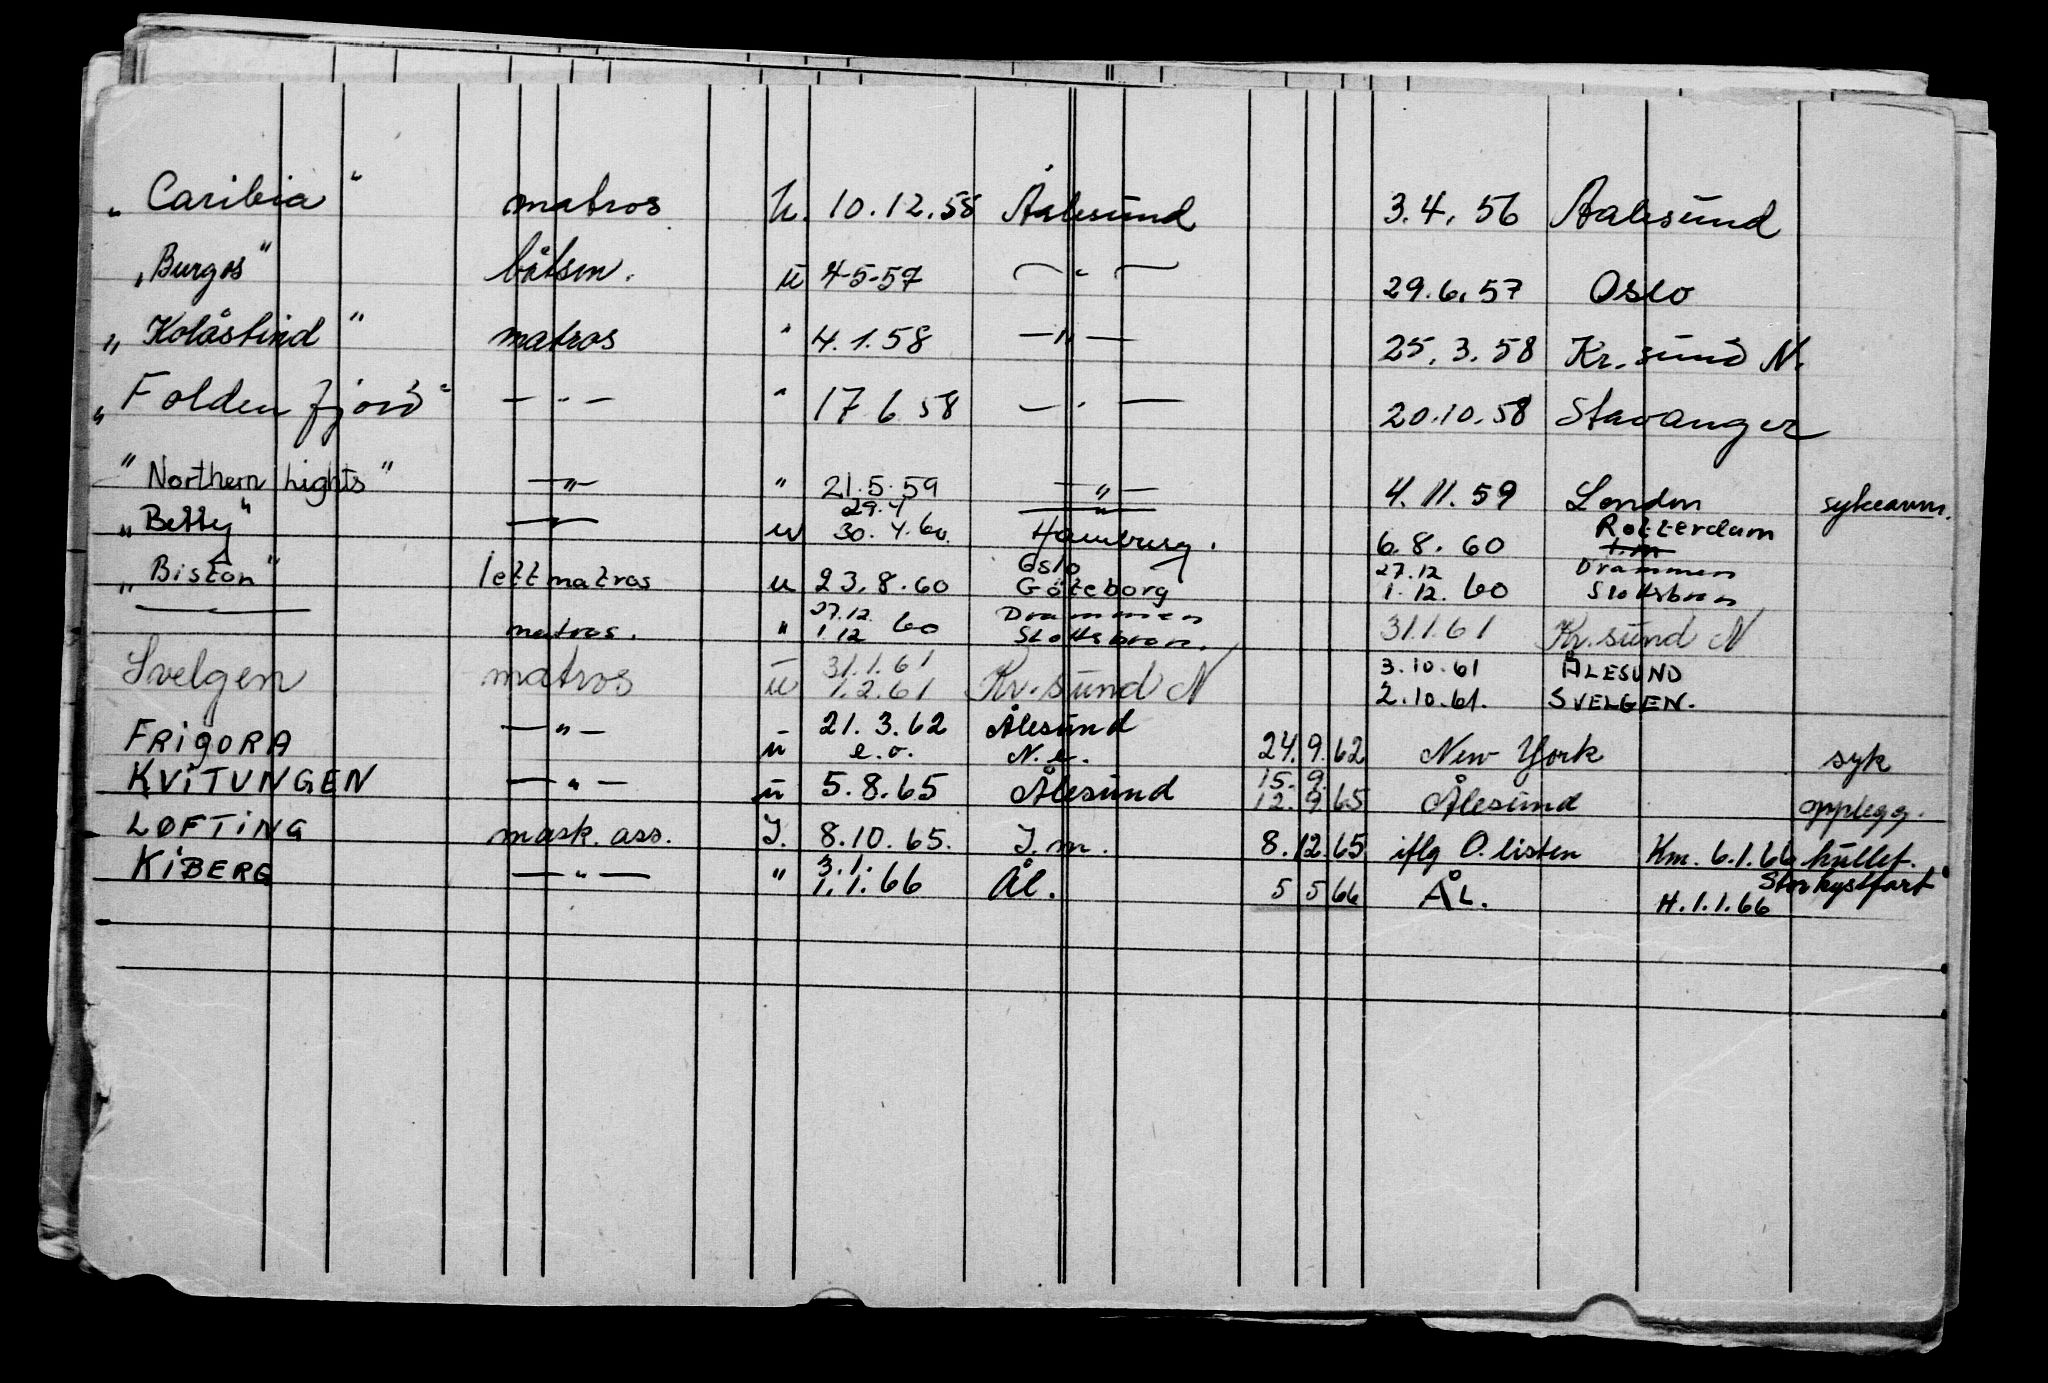 „ Caribia " matros U. 10.12.55 Ålesund 3.4.56 Aalesund
„Burgos" båtsm. u 4-5-57 — " — 29.6.57 Oslo
„ Kolåstind " matros " 4.1.58 — " — 25.3.58 Kr. sund N.
„ Folden fjord " — " — " 17 6 58 — " — 20.10.58 Stavanger
" Northern Lights " — " — " 21.5.59 — " — 4.11.59 London sykeavm.
29.4 — " — Rotterdam
„ Betty " — " — u 30.4.60. Hamburg. 6.8.60 I.m
Oslo 27.12 Drammen
„ Biston " lettmatros u 23.8.60 Göteborg 1.12.60 Slottsbron
27.12 Drammen
— matros. " 1.12 60 Slottsbron. 31.1.61 Kr. sund N
31.1.61 3.10.61 ÅLESUND
Svelgen matros u 1.2.61 Kr. sund N 2.10.61. SVELGEN.
— " — 21.3.62 Ålesund
FRIGORA u e.o. N.e. 24.9.62 New York syk
15.9.
KVITUNGEN — " — u 5.8.65 Ålesund 12.9.65 Ålesund opplegg.
LØFTING mask. ass. I. 8.10.65. I.m. 8.12.65 iflg O.listen Km. 6.1.66 hullet.
3.1. Stor kystfart
KIBERG — " — " 1.1.66 Ål. 5 5 66 ÅL. H.1.1.66